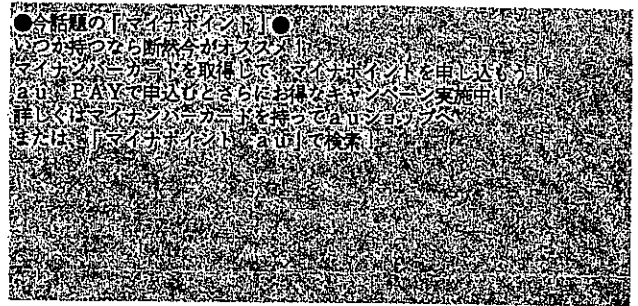 ●今話題の「マイナポイント」●
いつか持つなら断然今がオススメ!
マイナンバーカードを取得して、マイナポイントを申し込もう!
au PAYで申込むとさらにお得なキャンペーン実施中!
詳しくはマイナンバーカードを持ってauショップへ
または、「マイナポイント au」で検索!